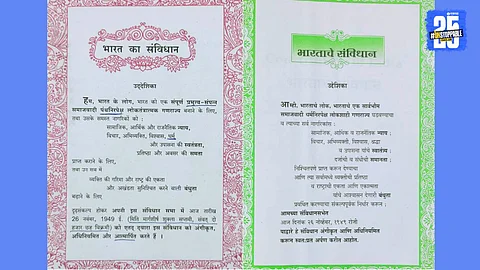 भारत का संविधान
उद्देशिका
हम, भारत के लोग, भारत को एक संपूर्ण प्रभुत्व-संपन्न
समाजवादी पंथनिरपेक्ष लोकतंत्रात्मक गणराज्य बनाने के लिए,
तथा उसके समस्त नागरिकों को :
सामाजिक, आर्थिक और राजनैतिक न्याय,
विचार, अभिव्यक्ति, विश्वास, धर्म
और उपासना की स्वतंत्रता,
प्रतिष्ठा और अवसर की समता
प्राप्त कराने के लिए,
तथा उन सब में
व्यक्ति की गरिमा और राष्ट्र की एकता
और अखंडता सुनिश्चित करने वाली बंधुता
बढ़ाने के लिए
दृढ़संकल्प होकर अपनी इस संविधान सभा में आज तारीख
26 नवंबर, 1949 ई. (मिति मार्गशीर्ष शुक्ला सप्तमी, संवत् दो
हजार छह विक्रमी) को एतद् द्वारा इस संविधान को अंगीकृत,
अधिनियमित और आत्मार्पित करते हैं ।
भारताचे संविधान
उद्देशिका
आम्ही, भारताचे लोक, भारताचे एक सार्वभौम
समाजवादी धर्मनिरपेक्ष लोकशाही गणराज्य घडवण्याचा
व त्याच्या सर्व नागरिकांस :
सामाजिक, आर्थिक व राजनैतिक न्याय ;
विचार, अभिव्यक्ती, विश्वास, श्रद्धा
व उपासना यांचे स्वातंत्र्य ;
दर्जाची व संधीची समानता ;
निश्चितपणे प्राप्त करून देण्याचा
आणि त्या सर्वांमध्ये व्यक्तीची प्रतिष्ठा
व राष्ट्राची एकता आणि एकात्मता
यांचे आश्वासन देणारी बंधुता
प्रवर्धित करण्याचा संकल्पपूर्वक निर्धार करून ;
आमच्या संविधानसभेत
आज दिनांक २६ नोव्हेंबर, १९४९ रोजी
याद्वारे हे संविधान अंगीकृत आणि अधिनियमित
करून स्वतःप्रत अर्पण करीत आहोत.
25
#UNSTOPPABLE